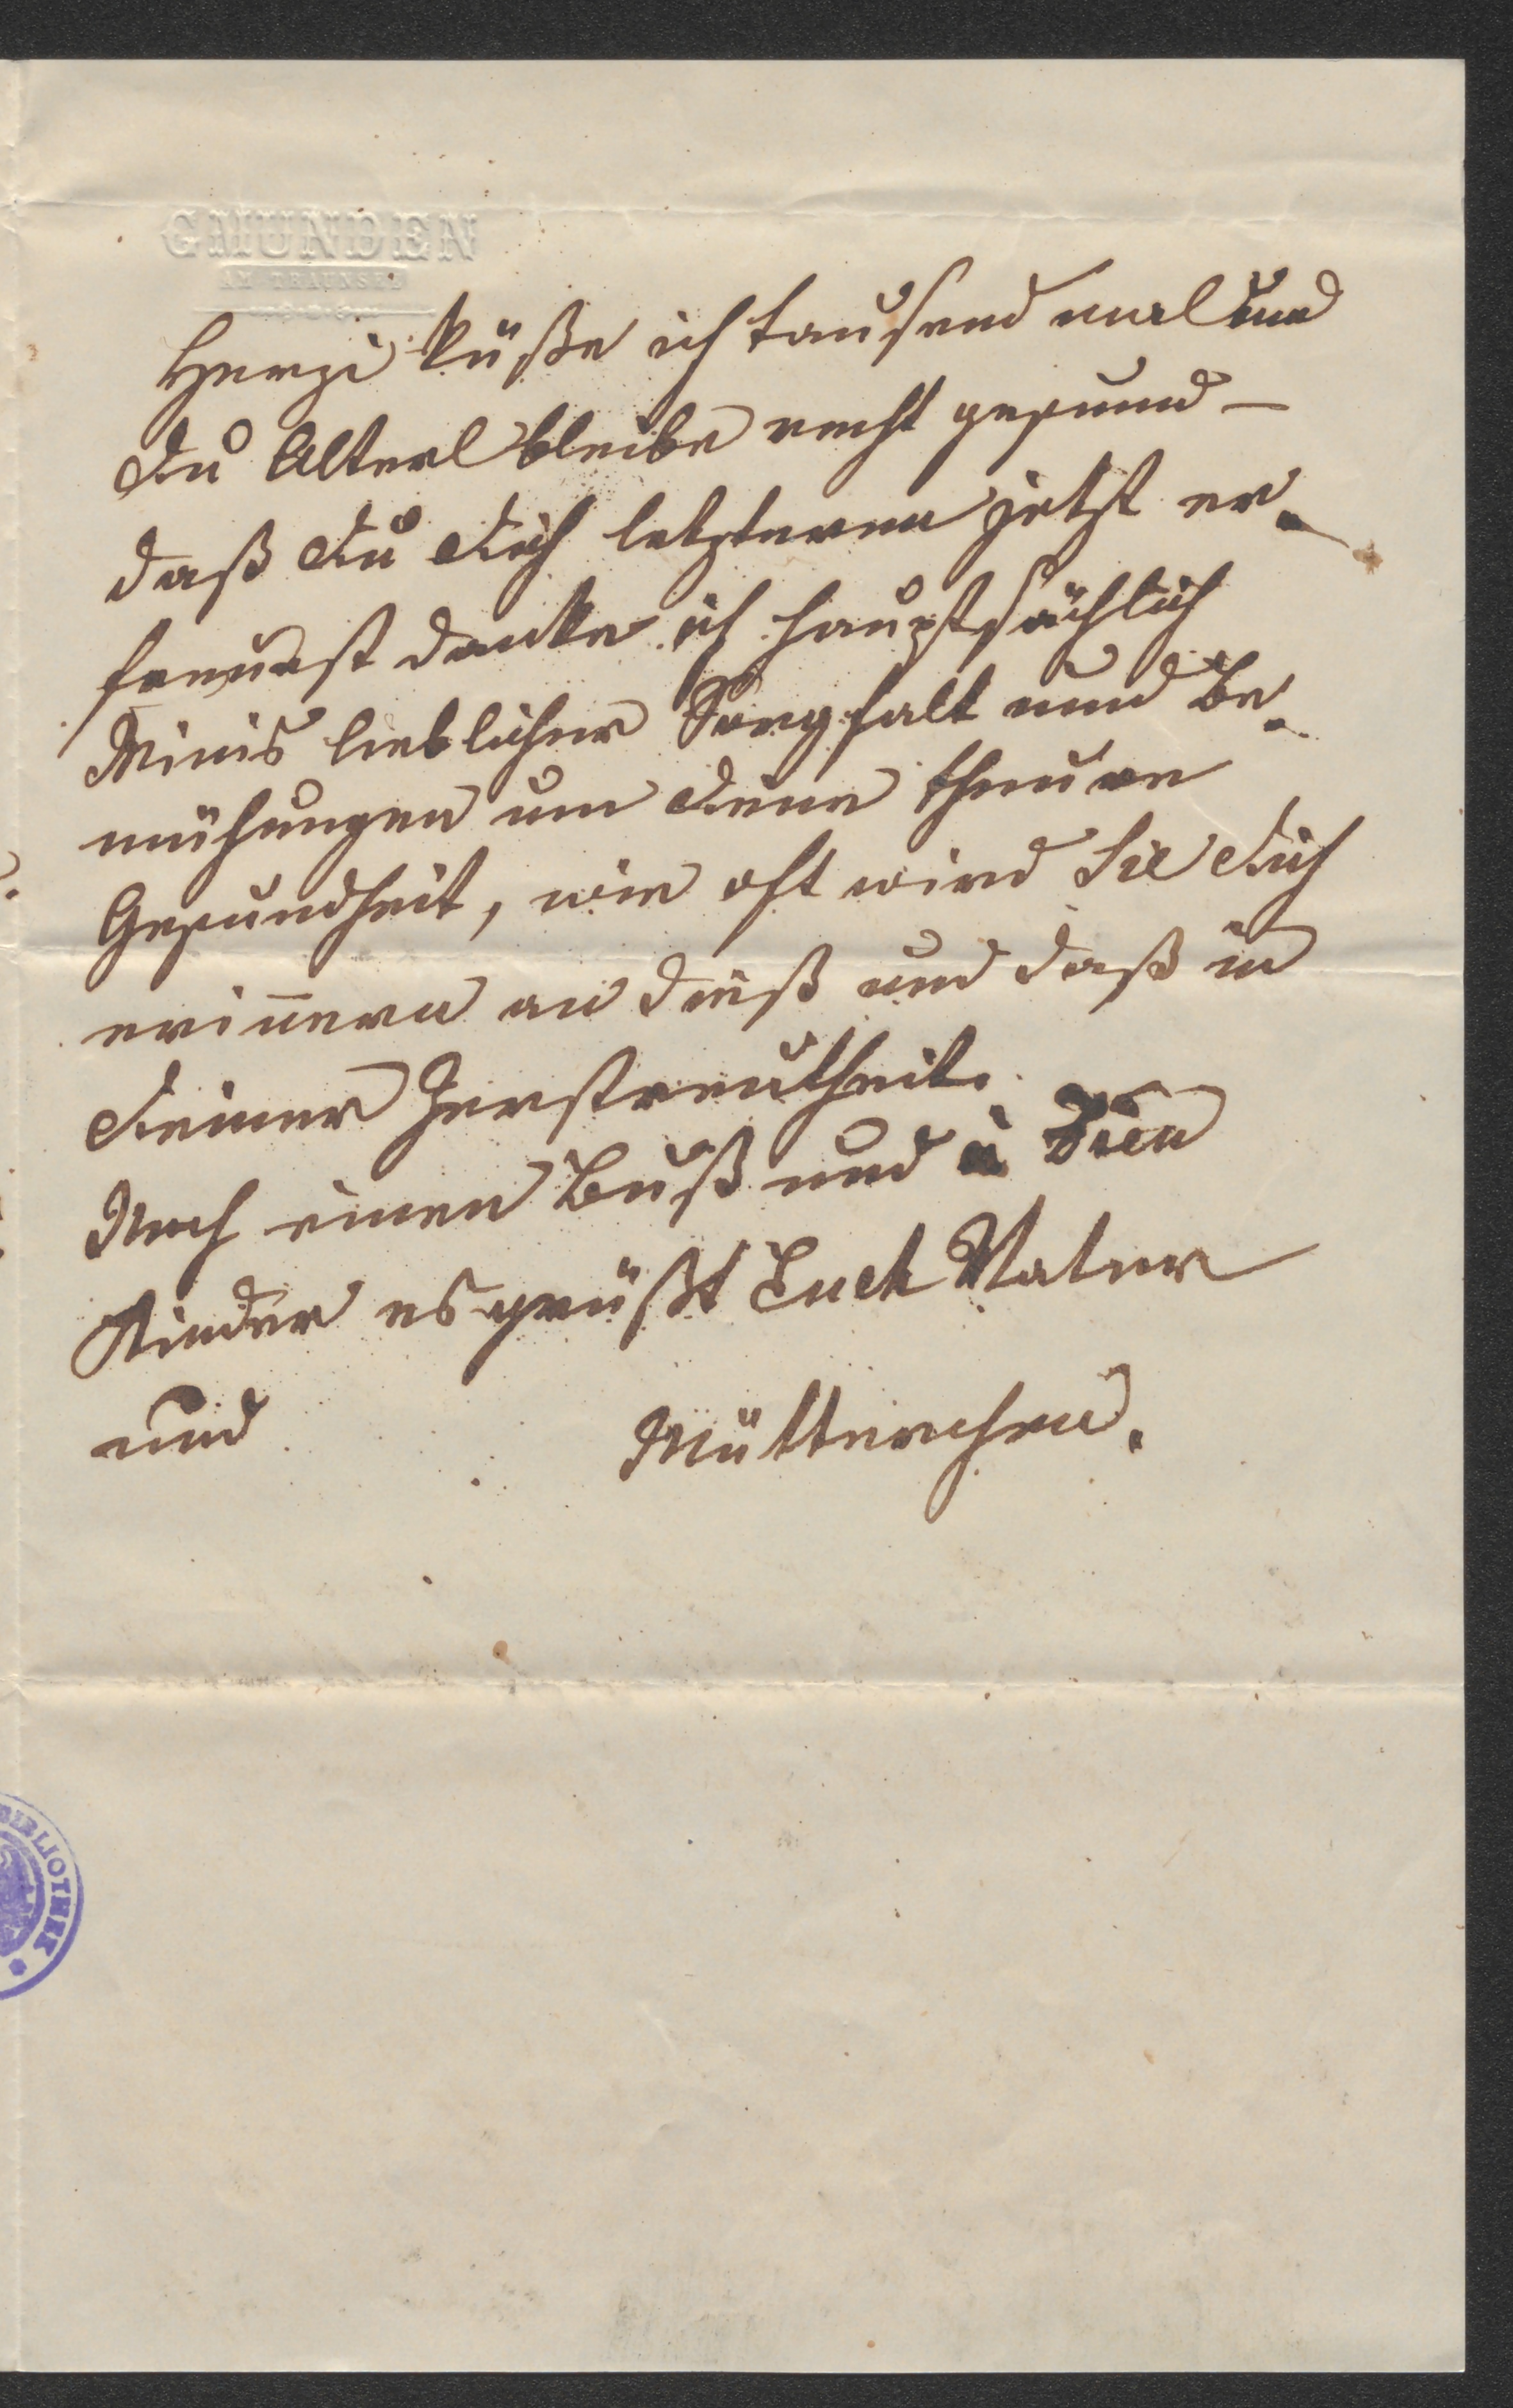 GMUNDEN
AM TRAUNSEE
Herzi küße ich tausend mal und
Du Alterl bleibe recht gesund —
daß Du Dich letzteren jetzt er-
freuest danke ich hauptsächlich
Minis lieblicher Sorgfalt und Be-
mühungen um Deine theure
Gesundheit, wie oft wird Sie Dich
erinnern an dieß und daß in
Deiner Zerstreutheit.
Noch einen Buß und à Dieu
Kinder es grüßt Euch Vater
und Mütterchen.
BIBLIOTHEK